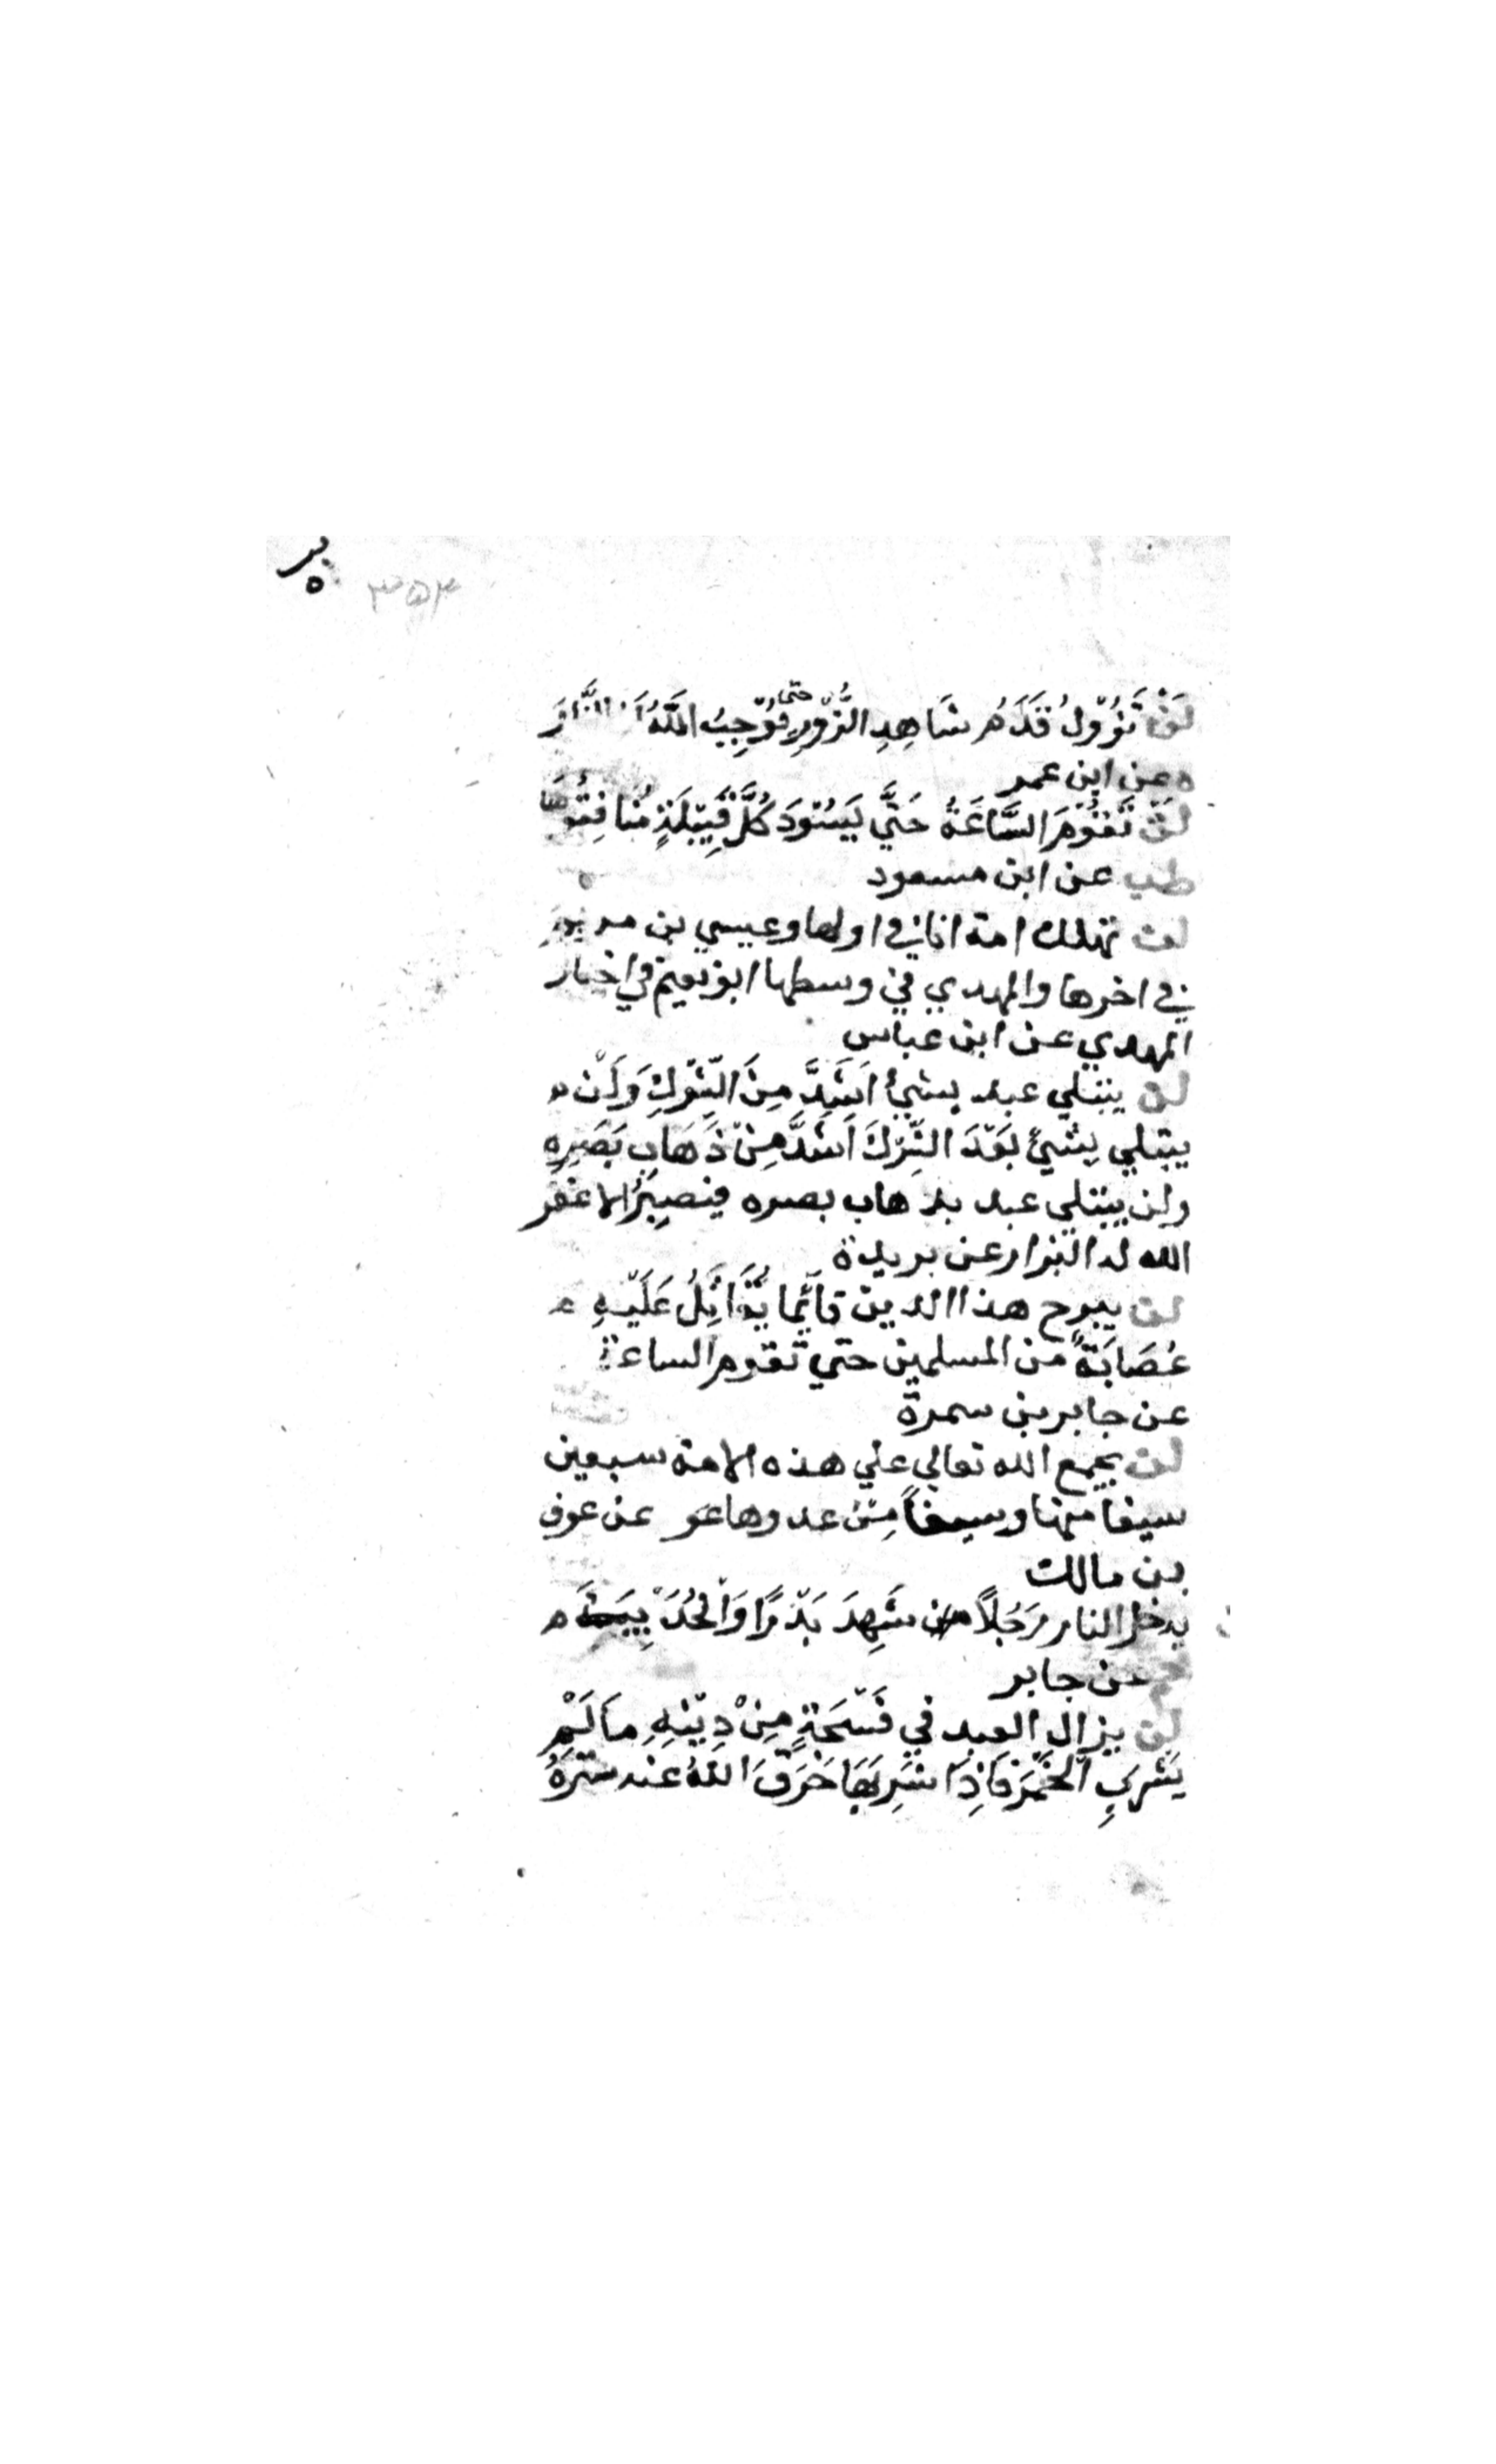 ٣٥٣
لَنْ تَزُوْلُ قَدَمُ شَاهِدِ الزُّوْرِ حتى يُوْجِبُ اللَّهُ النَّارَ
ه عن ابن عمر
لَنْ تَقُوْمَ السَّاعَةُ حَتَّي يَسُوْدَ كُلَّ قَبِيْلَةٍ مُنَافِقُوهَا
طب عن ابن مسعود
لن تهلك امة انا في اولها وعيسي بن مريم
في اخرها والمهدي في وسطها ابو نعيم في اخبار
المهدي عن ابن عباس
لن يبتلي عبد بشيْ اَشَدَّ مِنَ الشِّرْكِ وَلَنْ
يبتلي بِشَيْ بَعْدَ الشِّرْكَ اَشَدَّ مِنْ ذَهَابِ بَصَرِهِ
ولن يبتلي عبد بذهاب بصره فيصبِرُ الا غفر
الله له البزار عن بريدة
لن يبرح هذا الدين قائما يُقَاتِلُ عَلَيْهِ
عُصَابَةً من المسلمين حتي تقوم الساعة
عن جابر بن سمرة
لن يجمع الله تعالي علي هذه الامة سبعين
سيفا منها وسيفاً مِنْ عدوها عن عوف
بن مالك
يدخل النار رَجُلاً شَهِدَ بَدْرًا وَالْحُدَيْبِيَةَ
عن جابر
لن يزال العبد في فَسْحَةٍ مِنْ دِيْنِهِ مَا لَمْ
يَشْرَبِ الخَمْرَ فَاِذَا شَرِبَهَا خَرَقَ اللهُ عنه سترَهُ